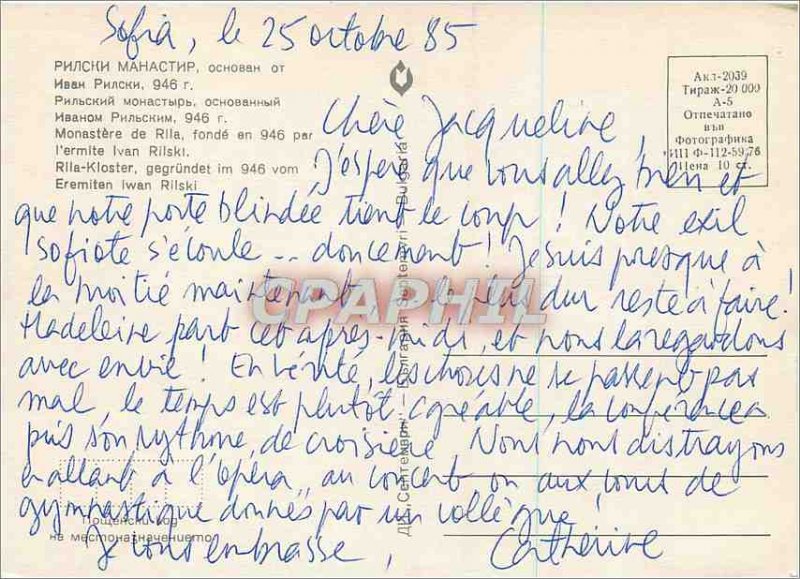 Sofia, le 25 octobre 85
РИЛСКИ МАНАСТИР, основан от
Иван Рилски, 946 г.
Рильский монастырь, основанный
Иваном Рильским, 946 г.
Monastère de Rila, fondé en 946 par
l'ermite Ivan Rilski.
Rila-Kloster, gegründet im 946 vom
Eremiten Iwan Rilski
Акл-2039
Тираж-20 000
А-5
Отпечатано
във
Фотографика
ИII Ф-112-59/76
Цена 10 ст.
Chère Jacqueline,
J'espère que vous allez bien et
que notre porte blindée tient le coup ! Notre exil
sofiote s'écoule ... doucement ! Je suis presque à
la moitié maintenant le plus dur reste à faire !
Madeleine part cet après-midi, et nous la regardons
avec envie ! En vérité, les choses ne se passent pas
mal, le temps est plutôt agréable, la conférence a
pris son rythme de croisière. Nous nous distrayons
en allant à l'opéra, au concert ou aux cours de
gymnastique donnés par un collègue !
Je vous embrasse,
Catherine
ДП „Септември" — България
Septemvri - Bulgaria
Пощенски код
на местоназначението
CPAPHIL